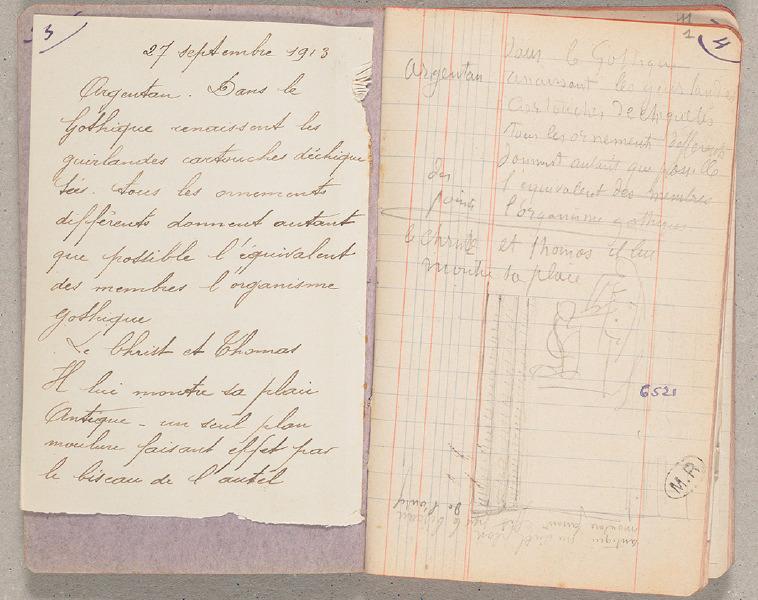 3
27 septembre 1913
Argentan. Dans le
Gothique renaissent les
guirlandes cartouches déchique
tés. tous les ornements
différents donnent autant
que possible l'équivalent
des membres l'organisme
gothique
Le Christ et Thomas
Il lui montre sa plaie
Antique - un seul plan
moulure faisant effet par
le biseau de l'autel
4
le Gothique
argentan
renaissent les guirlandes
cartouches dechiquetés
tous les ornements differents
donnent autant que possible
l'équivalent des membres
l'organisme gothique
le Christ et Thomas il lui
montre sa place
6521
M.R
antique un seul plan
moulure faisant effet
par le biseau
de l'autel